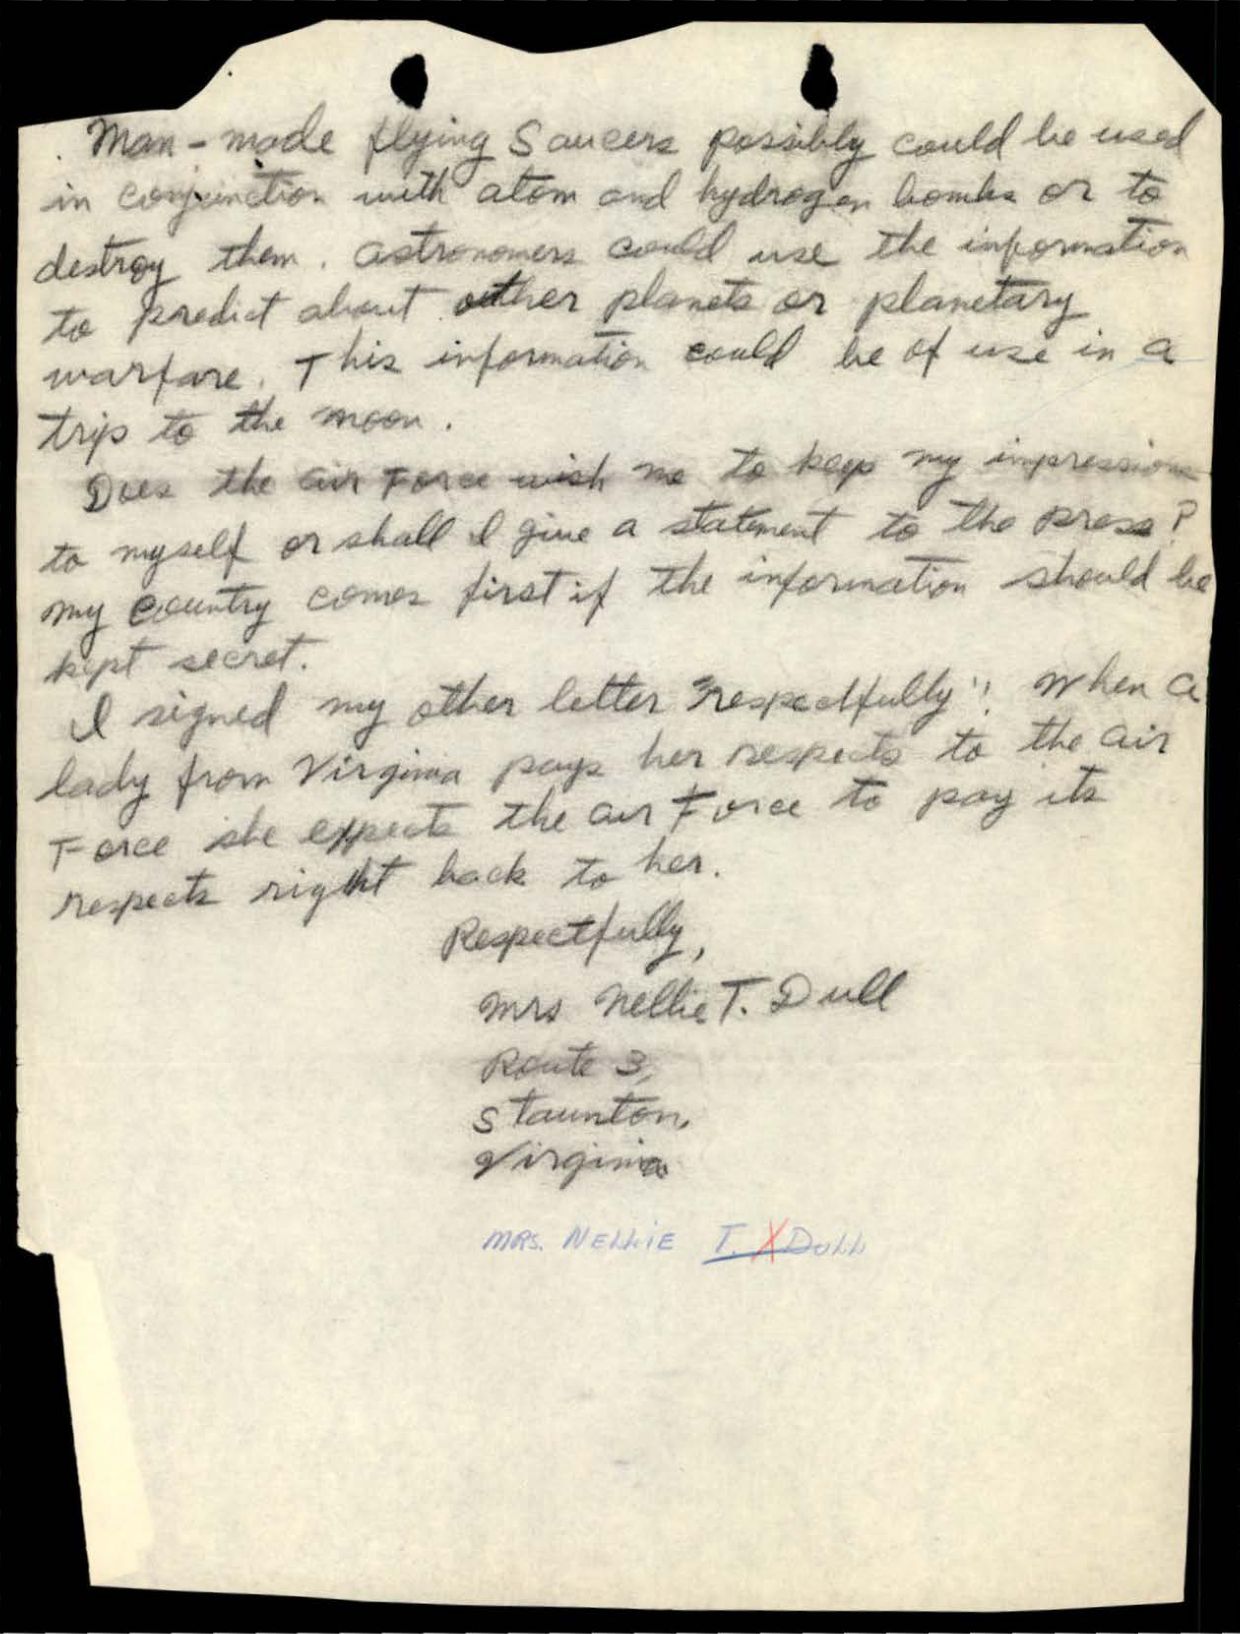 Man-made flying Saucers possibly could be used
in conjunction with atom and hydrogen bombs or to
destroy them. Astronomers could use the information
to predict about other planets or planetary
warfare. This information could be of use in a
trip to the moon.
Does the Air Force wish me to keep my impressions
to myself or shall I give a statement to the press?
My country comes first if the information should be
kept secret.
I signed my other letter "respectfully". When a
lady from Virginia pays her respects to the Air
Force she expects the Air Force to pay its
respects right back to her.
Respectfully,
Mrs Nellie T. Dull
Route 3,
Staunton,
Virginia
MRS. NELLIE T. X DULL